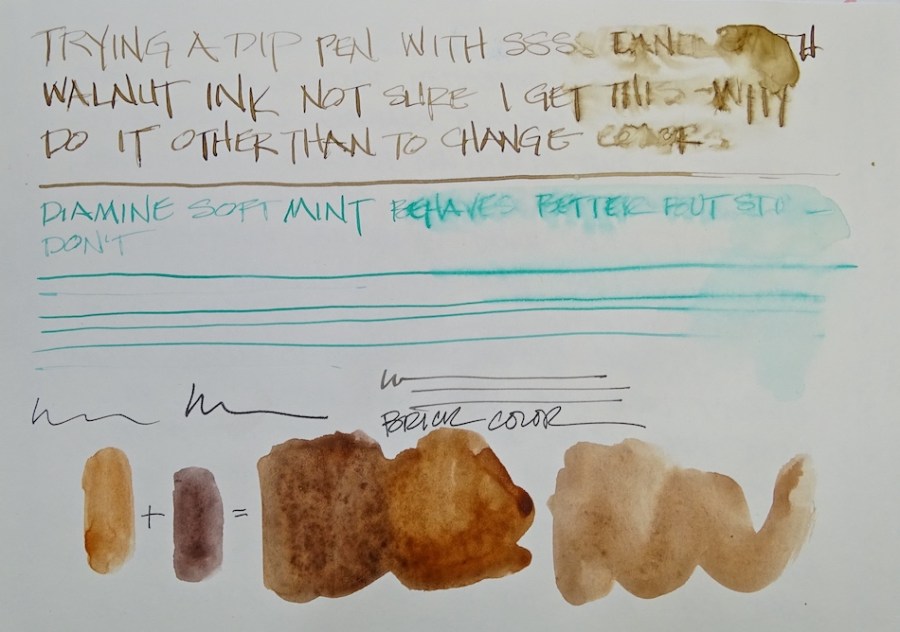 TRYING A DIP PEN WITH SSSS DANIEL SMITH
WALNUT INK NOT SURE I GET THIS - WHY
DO IT OTHER THAN TO CHANGE COLORS
DIAMINE SOFT MINT BEHAVES BETTER BUT STILL -
DON'T
BRICK COLOR
+ =